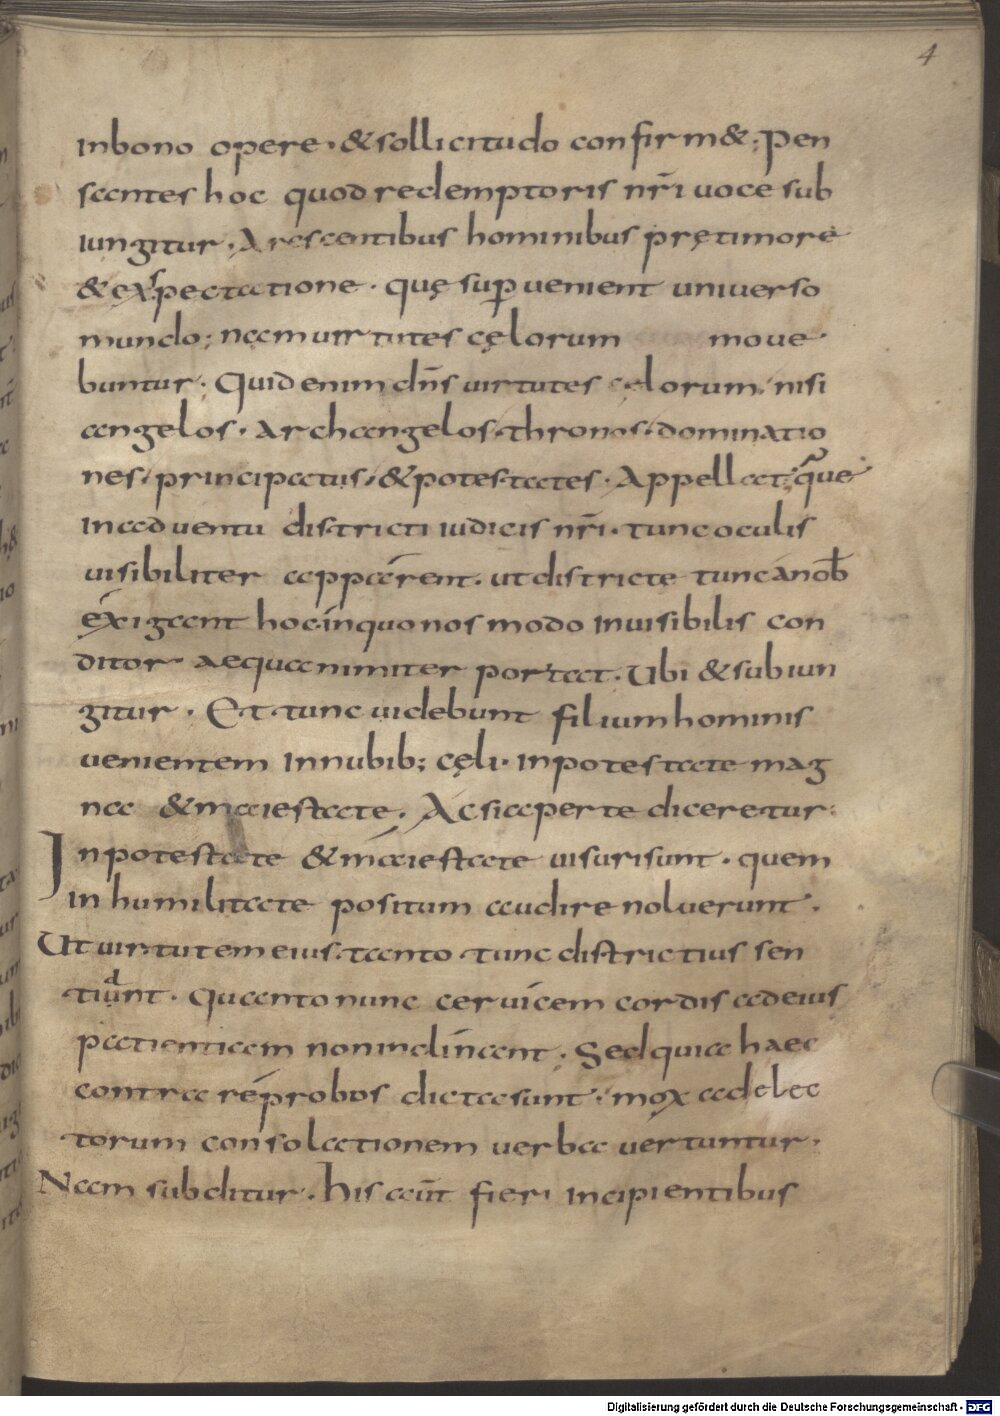 4
inbono opere · & sollicitudo confirm&; Pen
santes hoc quod redemptoris nr̄i uoce sub
iungitur · Arescentibus hominibus prętimore
& exspectatione · quę sup̄uenient uniuerso
mundo; nam uirtutes cęlorum moue
buntur · Quid enim dn̄s uirtutes cęlorum, nisi
angelos · Archangelos · thronos · dominatio
nes, principatus, & potestates · Appellat, quę
inaduentu districti iudicis nr̄i · tunc oculis
uisibiliter apparent · ut districtę tunc anob̄
exigant hoc inquo nos modo inuisibilis con
ditor aequanimiter portat · Ubi & subiun
gitur · Et tunc uidebunt filium hominis
uenientem innubib; cęli · inpotestate mag
na & maiestate · Ac si aperte diceretur ·
Inpotestate & maiestate uisurisunt · quem
in humilitate positum audire noluerunt ·
Ut uirtutem eius tanto tunc districtius sen
tiant · Quanto nunc ceruicem cordis adeius
patientiam noninclinant · Sed quia haec
contra reprobos dicta sunt · mox adelec
torum consolationem uerba uertuntur ·
Nam subditur · his aūt fieri incipientibus
Digitalisierung gefördert durch die Deutsche Forschungsgemeinschaft - DFG